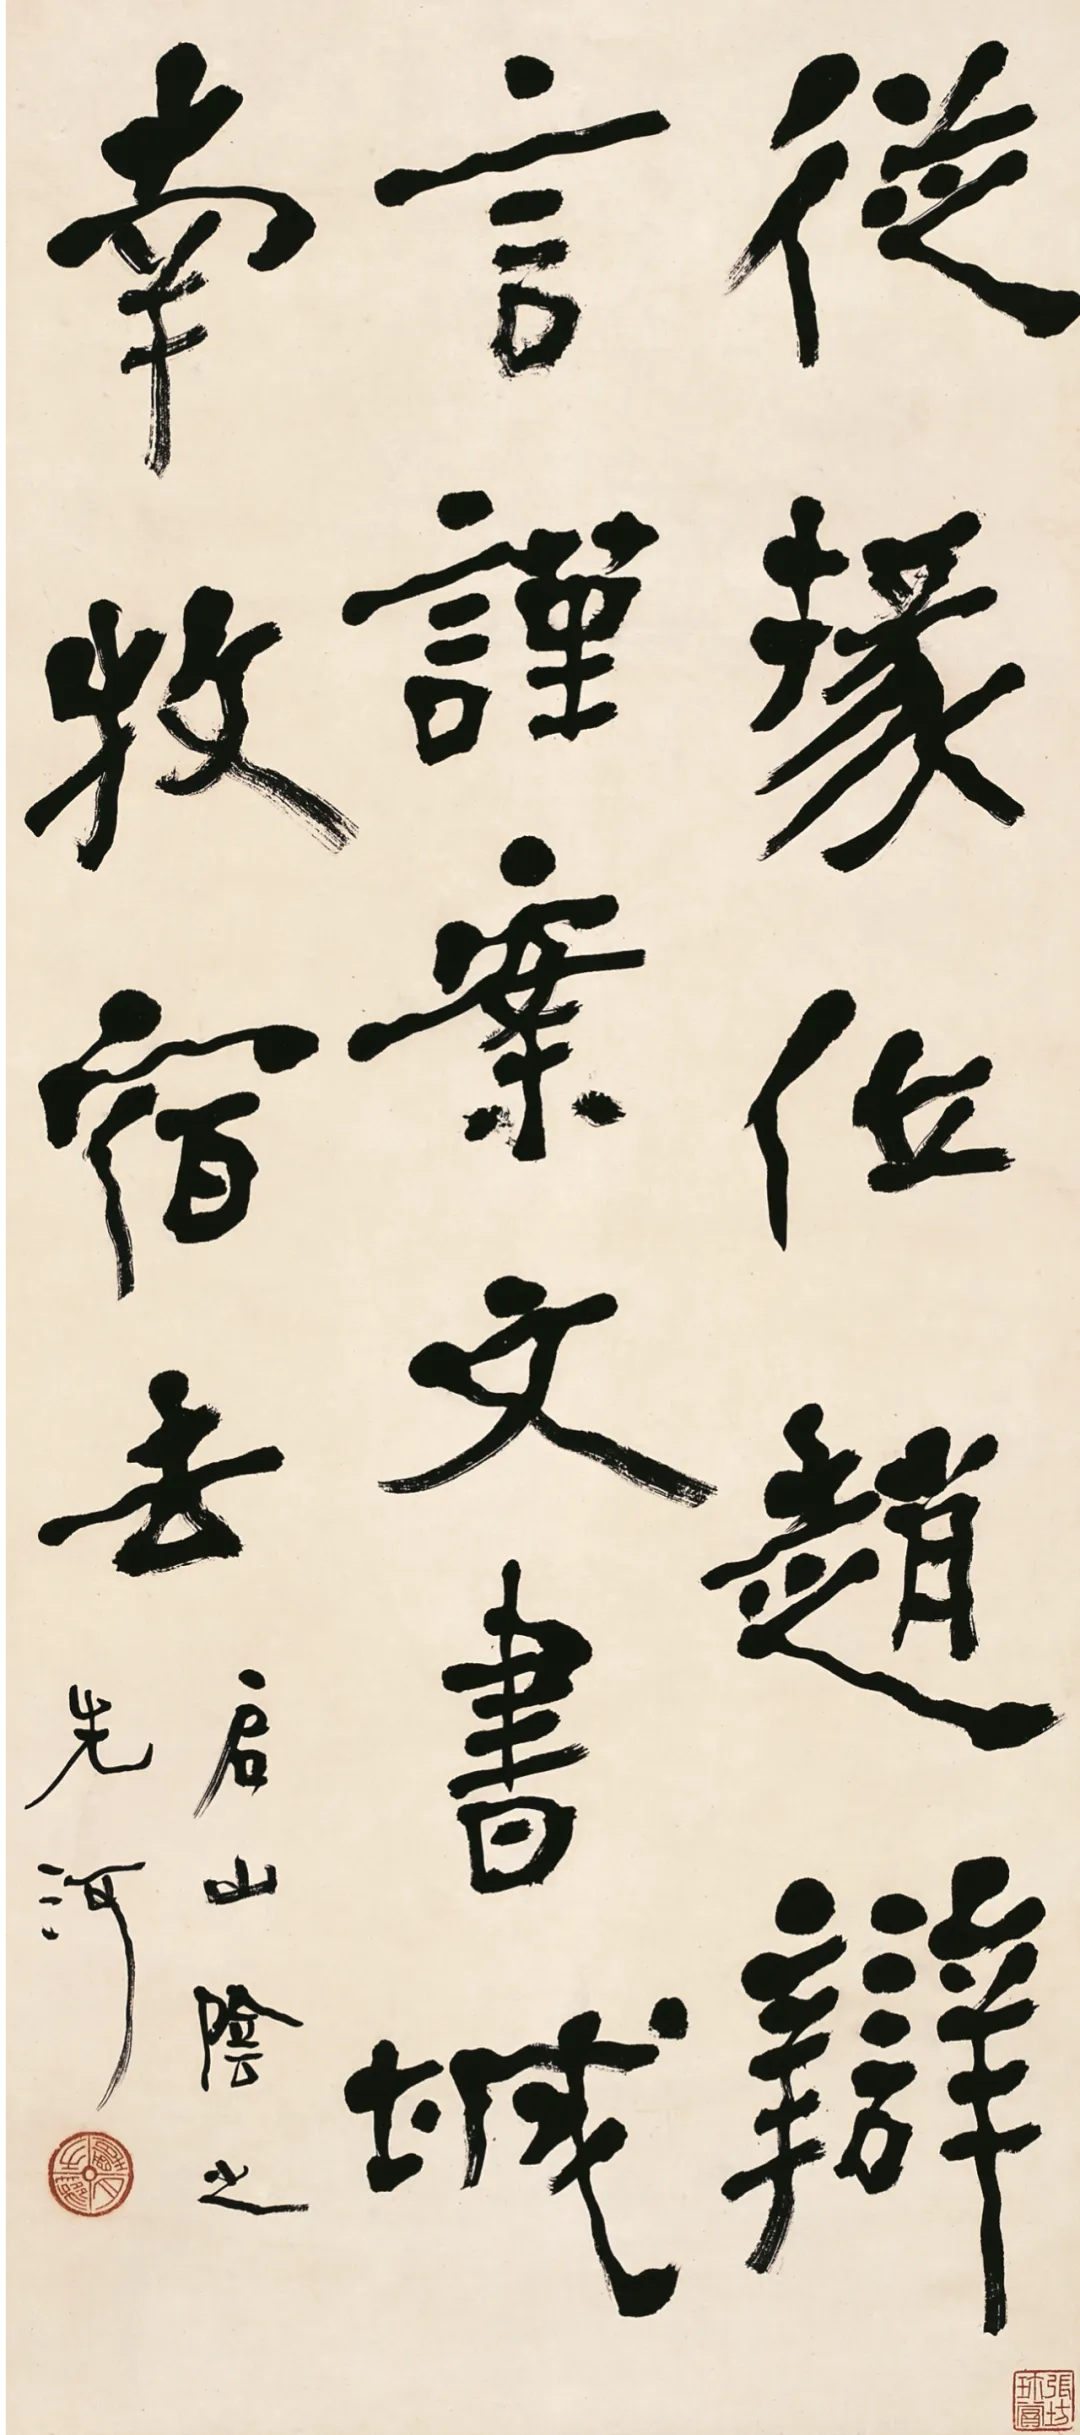 從掾位趙辯
言謹案文書城
南牧宿去
启山陰之
先河